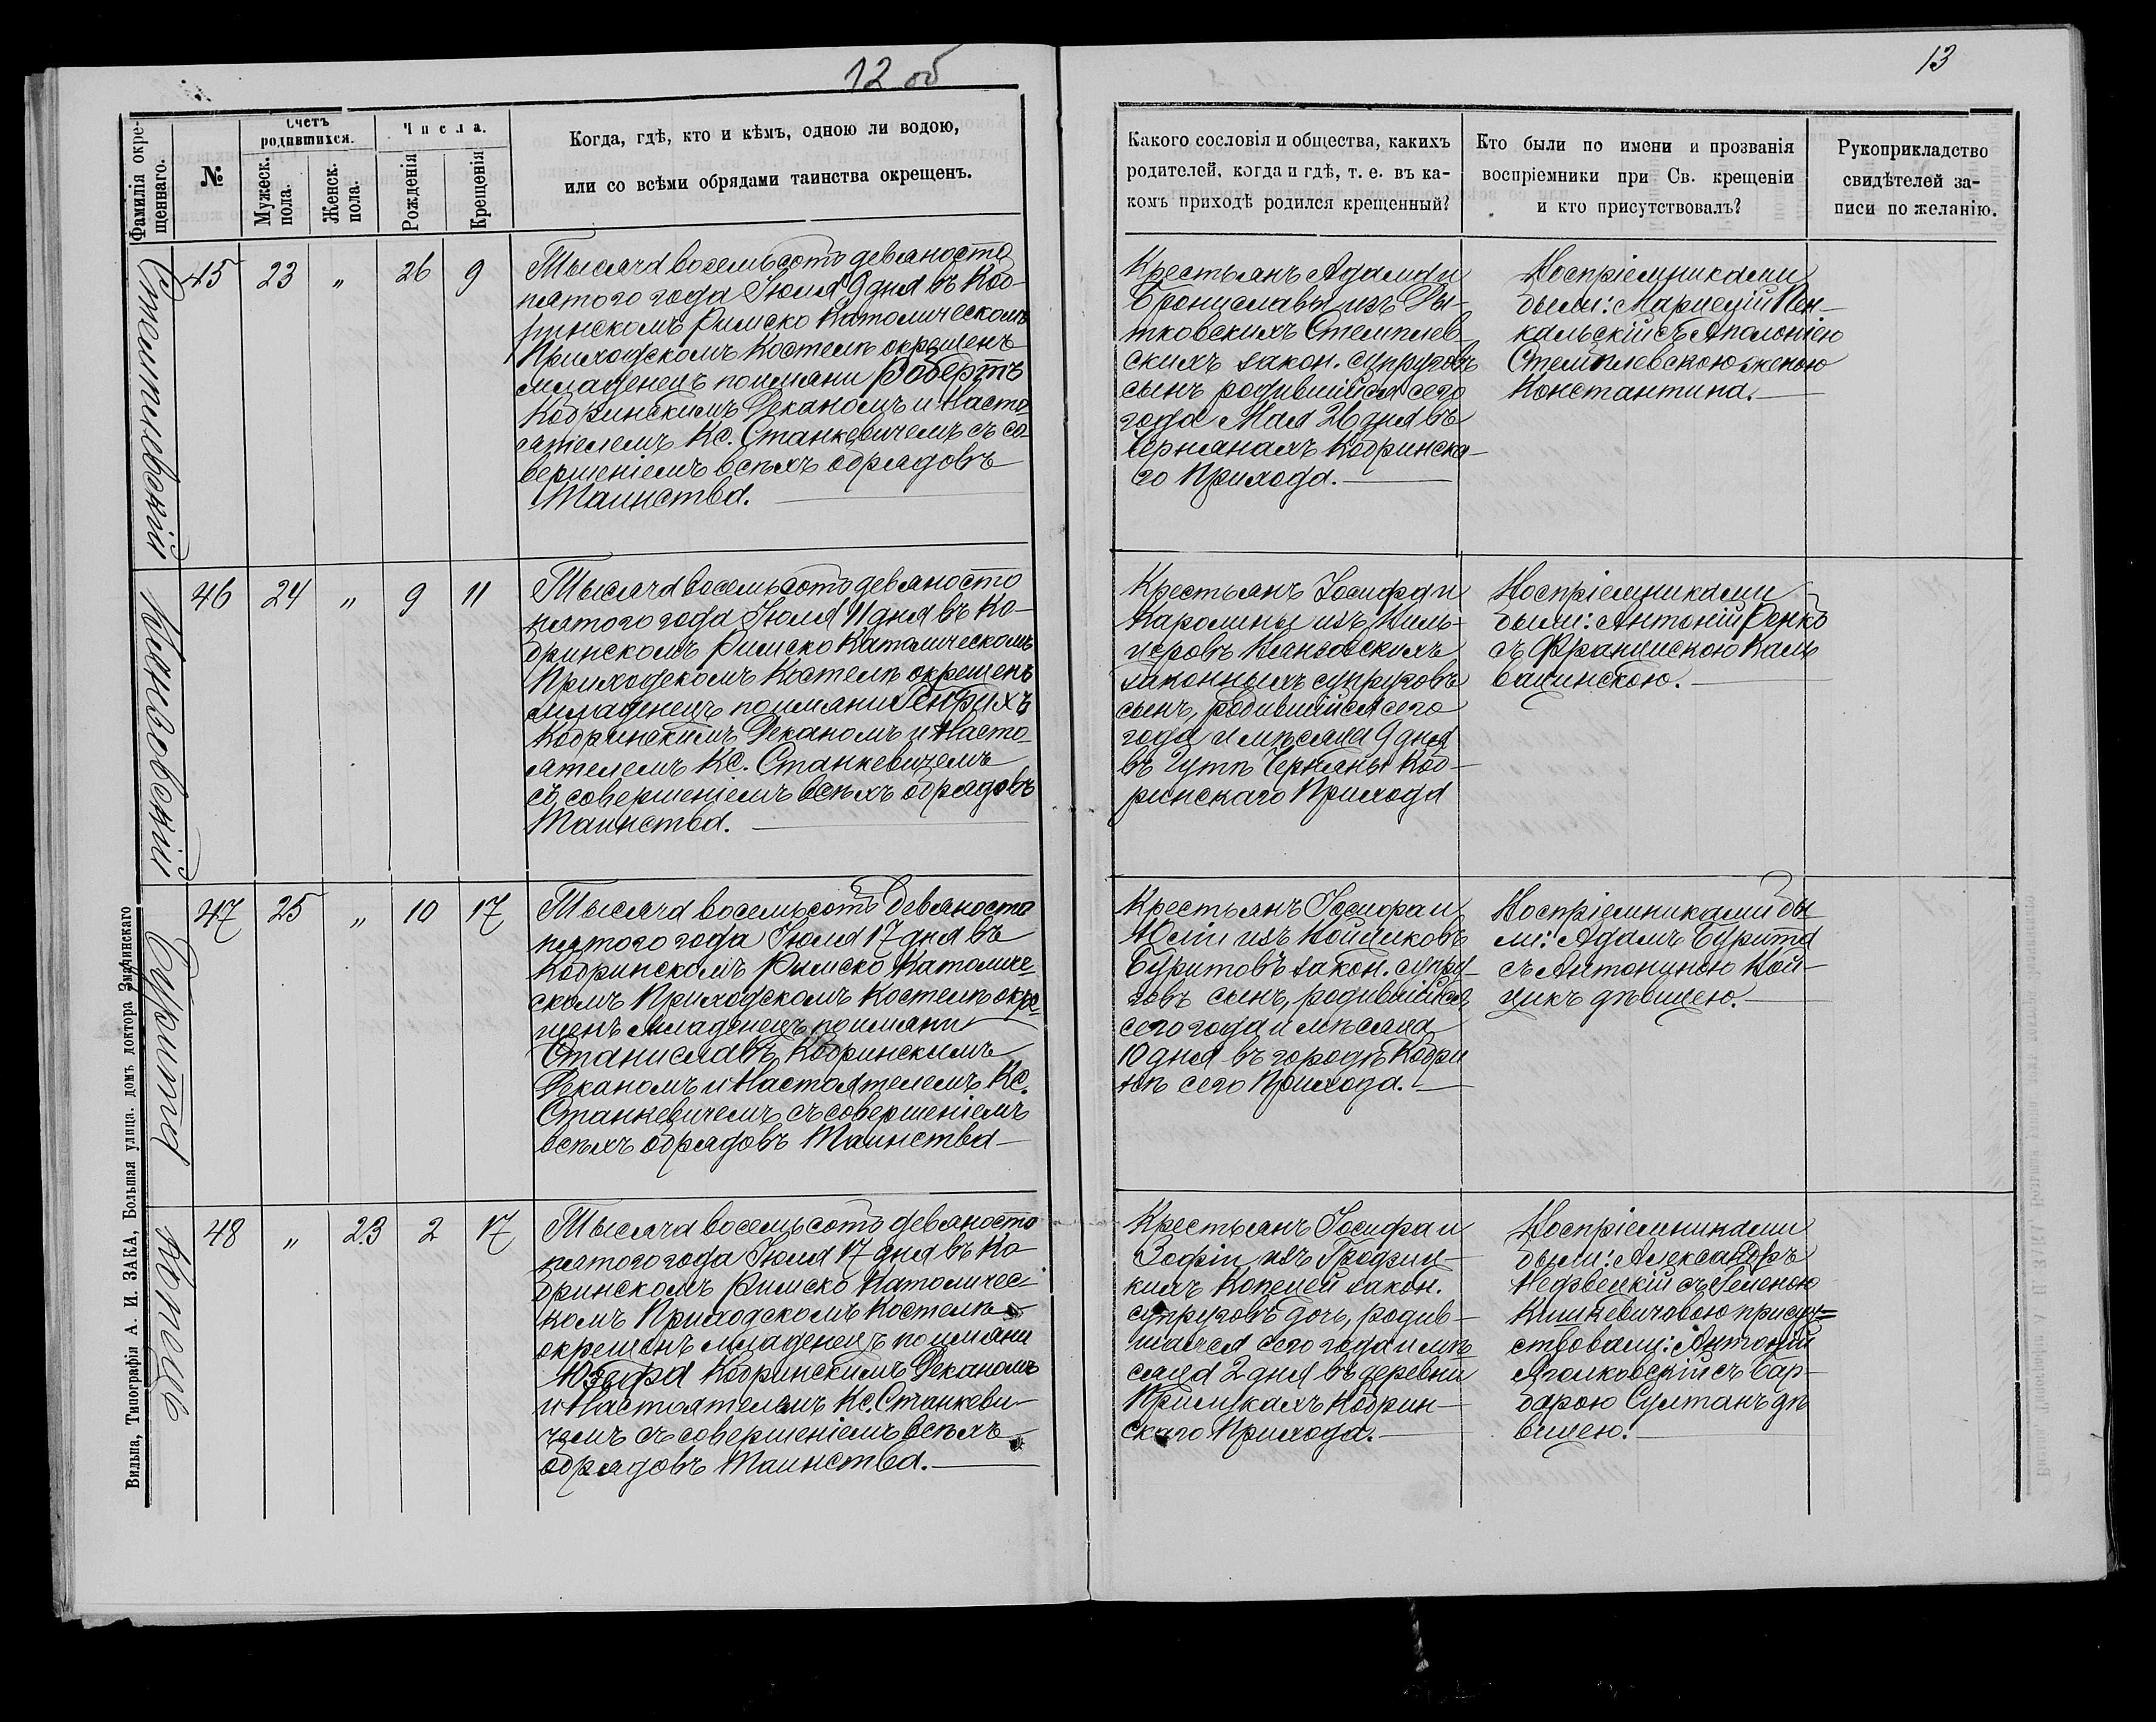 12 об
13
Фамилія окрещеннаго.
№
Счетъ родившихся.
Мужеск. пола.
Женск. пола.
Числа.
Рожденія
Крещенія
Когда, гдѣ, кто и кѣмъ, одною ли водою,
или со всѣми обрядами таинства окрещенъ.
Какого сословія и общества, какихъ
родителей, когда и гдѣ, т. е. въ ка-
комъ приходѣ родился крещенный?
Кто были по имени и прозванія
воспріемники при Св. крещеніи
и кто присутствовалъ?
Рукоприкладство
свидѣтелей за-
писи по желанію.
Стемплевскій
45 23 „ 26 9
Тысяча восемьсотъ девяносто
пятого года Іюля 9 дня въ Коб-
ринскомъ Римско Католическомъ
Приходскомъ Костелѣ окрещенъ
младенецъ по имяни Робертъ
Кобринскимъ Деканомъ и Насто-
ятелемъ Кс. Станкевичемъ съ со-
вершеніемъ всѣхъ обрядовъ
Таинства.
Крестьянъ Адама и
Брониславы изъ Ры-
тковскихъ Стемплев-
скихъ закон. супруговъ
сынъ родившійся сего
года Мая 26 дня въ
Чернянахъ Кобринска-
го Прихода.
Воспріемниками
были:
кальскій съ Аполоніею
Стемплевскою женою
Константина.
Кляновскій
46 24 „ 9 11
Тысяча восемьсотъ девяносто
пятого года Іюля 11 дня въ Ко-
бринскомъ Римско Католическомъ
Приходскомъ Костелѣ окрещенъ
младенецъ по имяни Генрихъ
Кобринскимъ Деканомъ и Насто-
ятелемъ Кс. Станкевичемъ
съ совершеніемъ всѣхъ обрядовъ
Таинства.
Крестьянъ Іосифа и
Каролины изъ
законныхъ супруговъ
сынъ, родившійся сего
года и мѣсяца 9 дня
въ Гутѣ Черняны Коб-
ринскаго Прихода
Воспріемниками
были: Антоній Ренко
съ Францискою Каль
вацинскою.
Бурита
47 25 „ 10 17
Тысяча восемьсотъ девяносто
пятого года Іюля 17 дня въ
Кобринскомъ Римско Католиче-
скомъ Приходскомъ Костелѣ окре-
щенъ младенецъ по имяни
Станиславъ Кобринскимъ
Деканомъ и Настоятелемъ Кс.
Станкевичемъ съ совершеніемъ
всѣхъ обрядовъ Таинства
Крестьянъ Іосифа и
Юліи изъ Войциковъ
Буритовъ закон. супру-
говъ сынъ, родившійся
сего года и мѣсяца
10 дня въ городѣ Кобри
нѣ сего Прихода.
Воспріемниками бы
ли: Адамъ Бурита
съ Антониною Вой-
цикъ дѣвицею.
Копецъ
48 „ 23 2 17
Тысяча восемьсотъ девяносто
пятого года Іюля 17 дня въ Ко-
бринскомъ Римско Католичес-
комъ Приходскомъ Костелѣ
окрещенъ младенецъ по имяни
Юзефа Кобринскимъ Деканомъ
и Настоятелемъ Кс. Станкеви-
чемъ съ совершеніемъ всѣхъ
обрядовъ Таинства.
Крестьянъ Іосифа и
Зофіи изъ Гродзиц-
кихъ Копецей закон.
супруговъ дочь, родив-
шаяся сего года и мѣ
сяца 2 дня въ деревни
Прилукахъ Кобрин-
скаго Прихода.
Воспріемниками
были: Александръ
Недзвецкій съ Геленою
Кишкевичовою присут=
ствовали: Антоній
съ Бар-
барою Султанъ дѣ
вицею.
Вильна, Типографія А. И. ЗАКА, Большая улица. домъ доктора Змачинскаго